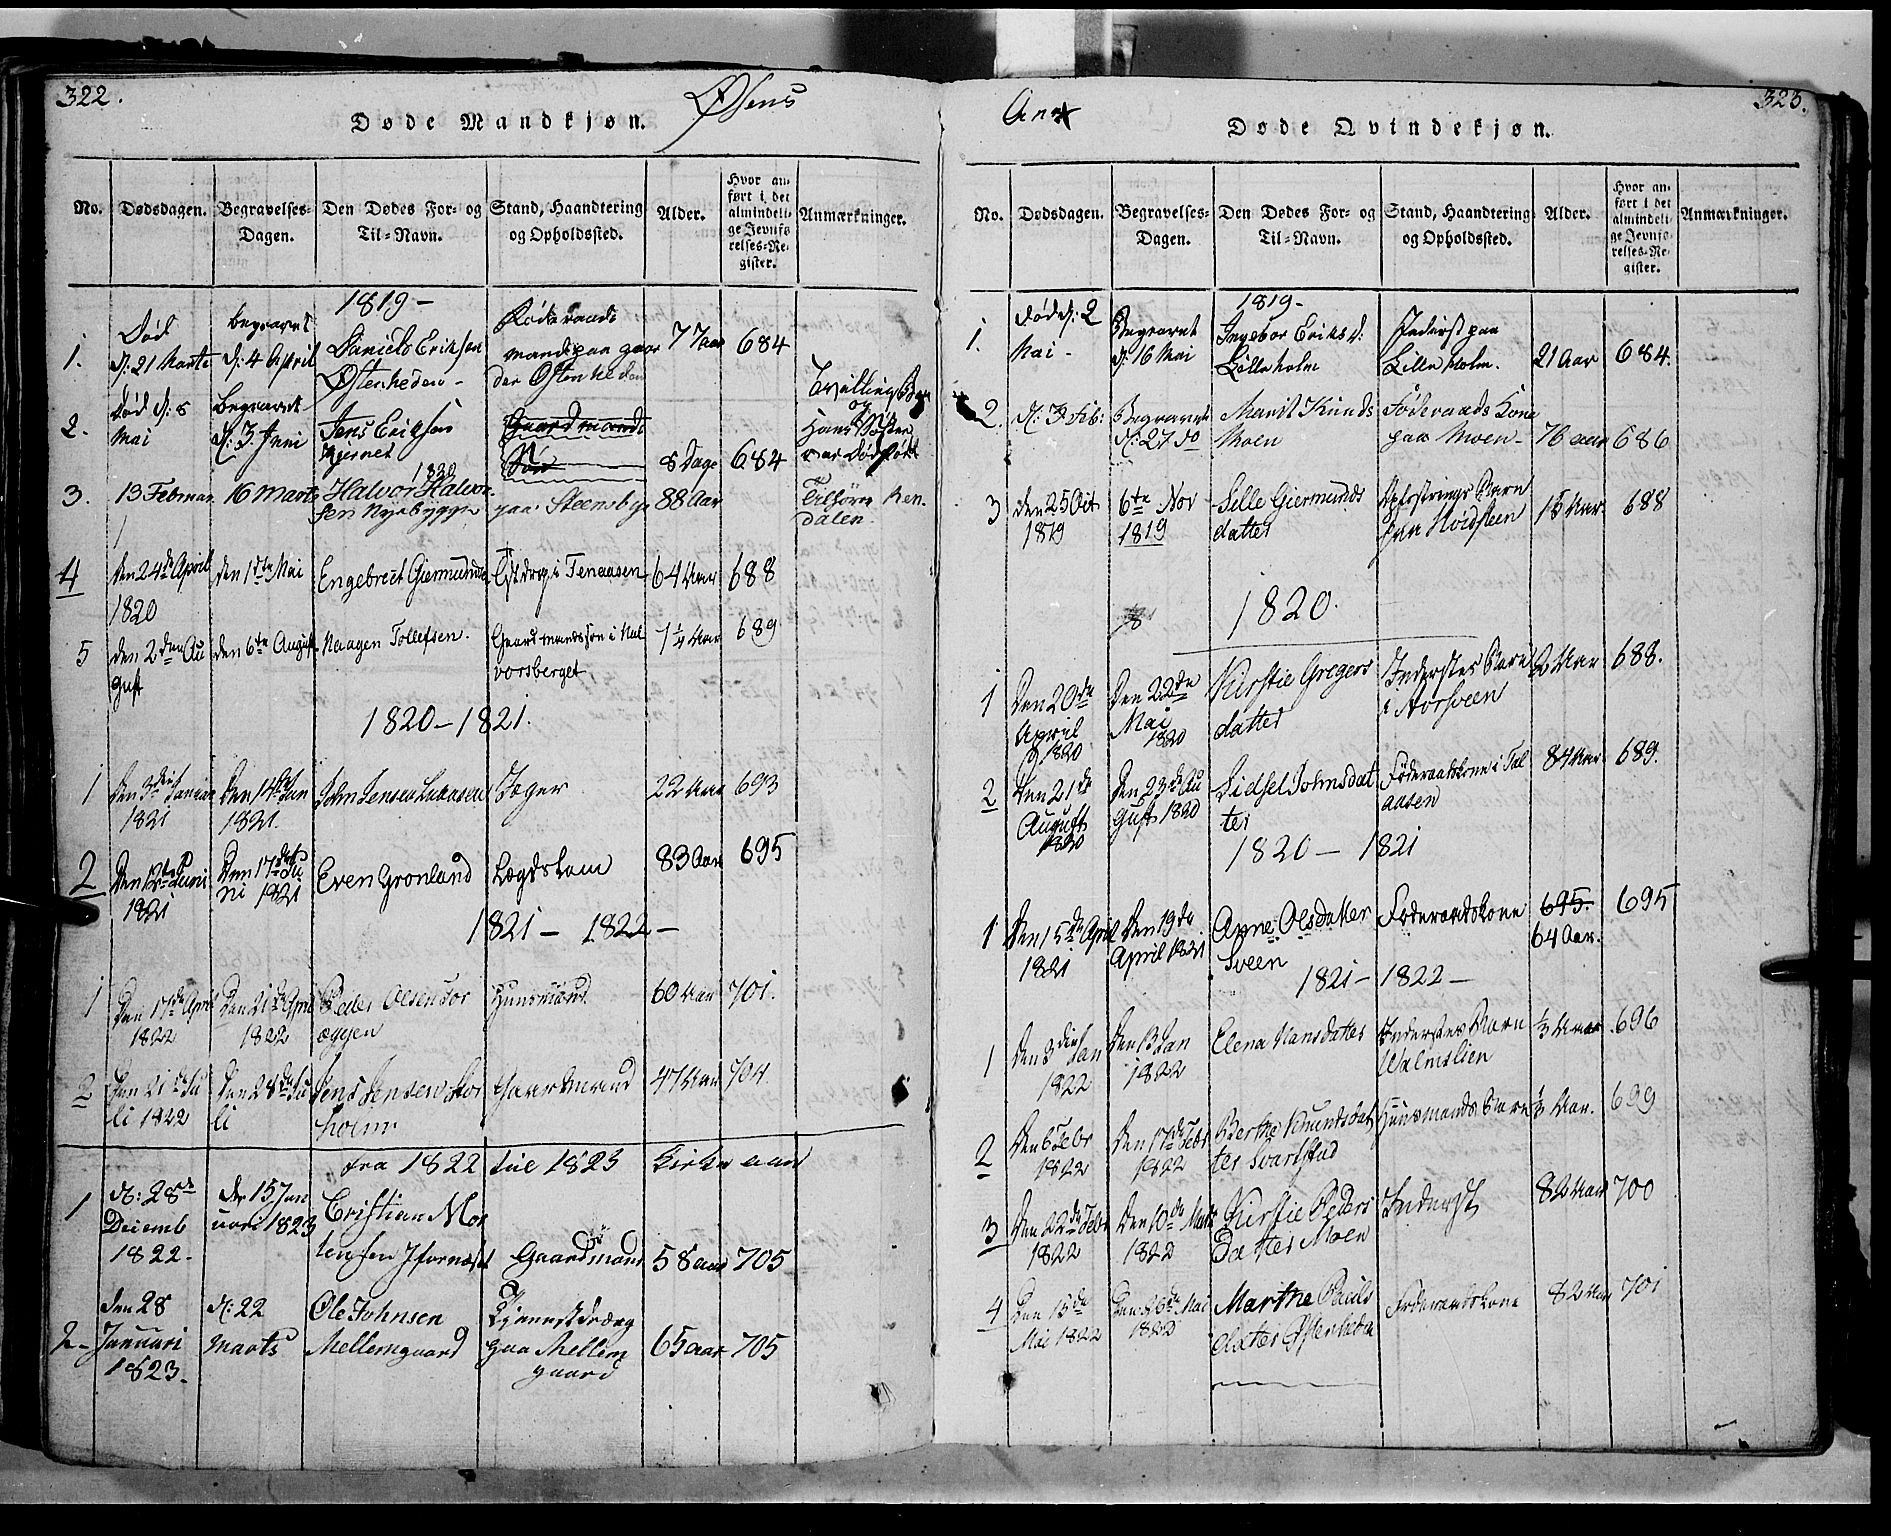 322.
Døde Mandkjøn.
Øsens
No.
Dødsdagen.
Begravelses-
Dagen.
Den Dødes For- og
Til-Navn.
Stand, Haandtering
og Opholdssted.
Alder.
Hvor an-
ført i det
almindeli-
ge Jevnfø-
relses-Re-
gister.
Anmærkninger.
1819-
1.
Død
d: 21 Marts
begravet
d: 4 April
Daniels Eriksen
Østenheden-
mand paa gaar
der Østenheden
77 aar
684
2.
Død d: 8
Mai
begravet
d: 3 Juni
Jens Eriksen
Gaardmands
Søn
8 Dage
684
Hans Søster
var dødfødt
1820
3.
13 Februar
16 Marts
Halvor Halvor-
sen Nyebygger
paa Steensbye
88 Aar
Ren-
dalen.
4
den 24de April
1820
den 1ste Mai
Engebret Giermunds.
i Tenaasen
64 Aar
688
5
den 2den Au
gust
den 6te August
Haagen Tollefsen.
Gaardmandssøn i Hal
vorsberget
1¼ Aar
689
1820-1821.
1
Den 3die Januar
1821
Den 14de Jan
1821.
John Jensen
Jæger
22 Aar
693
2
Juni
1821
Den 17de Ju
ni 1821
Even Grønland
Lægdslem
83 Aar
695
1821- 1822-
1
Den 17de April
1822
Den 21de April
1822
Peder Olsen Tor
æggen
Huusmand.
60 Aar
701.
2
Den 21de Ju
li 1822
Den 28de Ju
li
Jens Jensen Stor
holm
Gaardmand
47 Aar
704.
fra 1822 til 1823 Kirke aar
1
d: 28de
Decemb
1822-
den 15 Jan
uari 1823
Cristian Mor
tensen
Gaardmand
58 aar
705
2-
den 28
Januari
1823-
d: 22
Marts
Ole Johnsen
Mellemgaard
Tjenestdræng
paa Mellem
gaard
65 aar
705
Anx
323.
Døde Qvindekjøn.
No.
Dødsdagen.
Begravelses-
Dagen.
Den Dødes For- og
Til-Navn.
Stand, Haandtering
og Opholdssted.
Alder.
Hvor an-
ført i det
almindeli-
ge Jevnfø-
relses-Re-
gister.
Anmærkninger.
1819-
1.
død d: 2
Mai-
Begravet
d: 16 Mai
Ingebor Eriks d:
Lilleholm
Inderst paa
Lilleholm.
21 Aar
684.
2.
Feb:
Begravet
d: 27 do
Marit Knuds
Moen
Føderaads Kone
paa Moen-
76 aar
686
3
den 25 Oct
1819
6te Nov
1819
Sille Giermunds
datter
Opfostrings Barn
paa
15 Aar.
688
1820.
1
Den 20de
April
1820
Den 22de
Mai
1820
Kirstie Gregers
datter
Inderstes Barn
i
2 Aar
688.
2
Den 21de
August
1820
Den 23de Au
gust 1820
Lidsel Johnsdat
ter
Føderaadskone i Tal
aasen
84 Aar.
689.
1820- 1821
1
Den 15de April
1821
Den 19de
April 1821
Anne Olsdatter
Sveen
Føderaadskone
695.
64 Aar.
695
1821- 1822-
1
Den 3die Jan
1822
Den 13 Jan
1822
Elena Hansdatter
Inderstes Barn
i
⅓ Aar
696
2
Den 6 Febr
1822
Den 17de Febr
1822
Berthe Knudsdat
ter Svartstad
Huusmands Barn
Aar.
699
3
Den 22de Febr
1822
Den 10de Marts
1822
Kirstie Peders
Datter Moen
Inderst
82 Aar
700
4
Den 13de
Mai 1822
Den 26de Mai
1822
Marthe Pauls
datter Østenheden
Føderaadskone
82 Aar
701